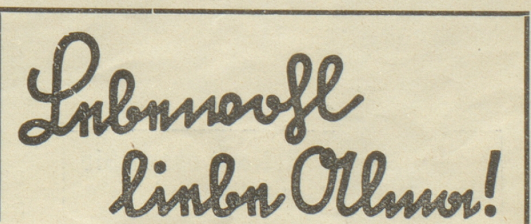 Lebewohl
liebe Alma!